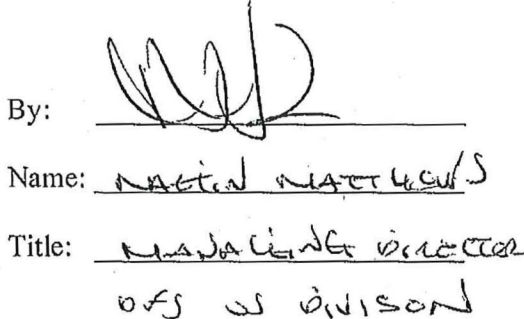 By:
Name: MARTIN MATTHEWS
Title: MANAGING DIRECTOR
DIVISON